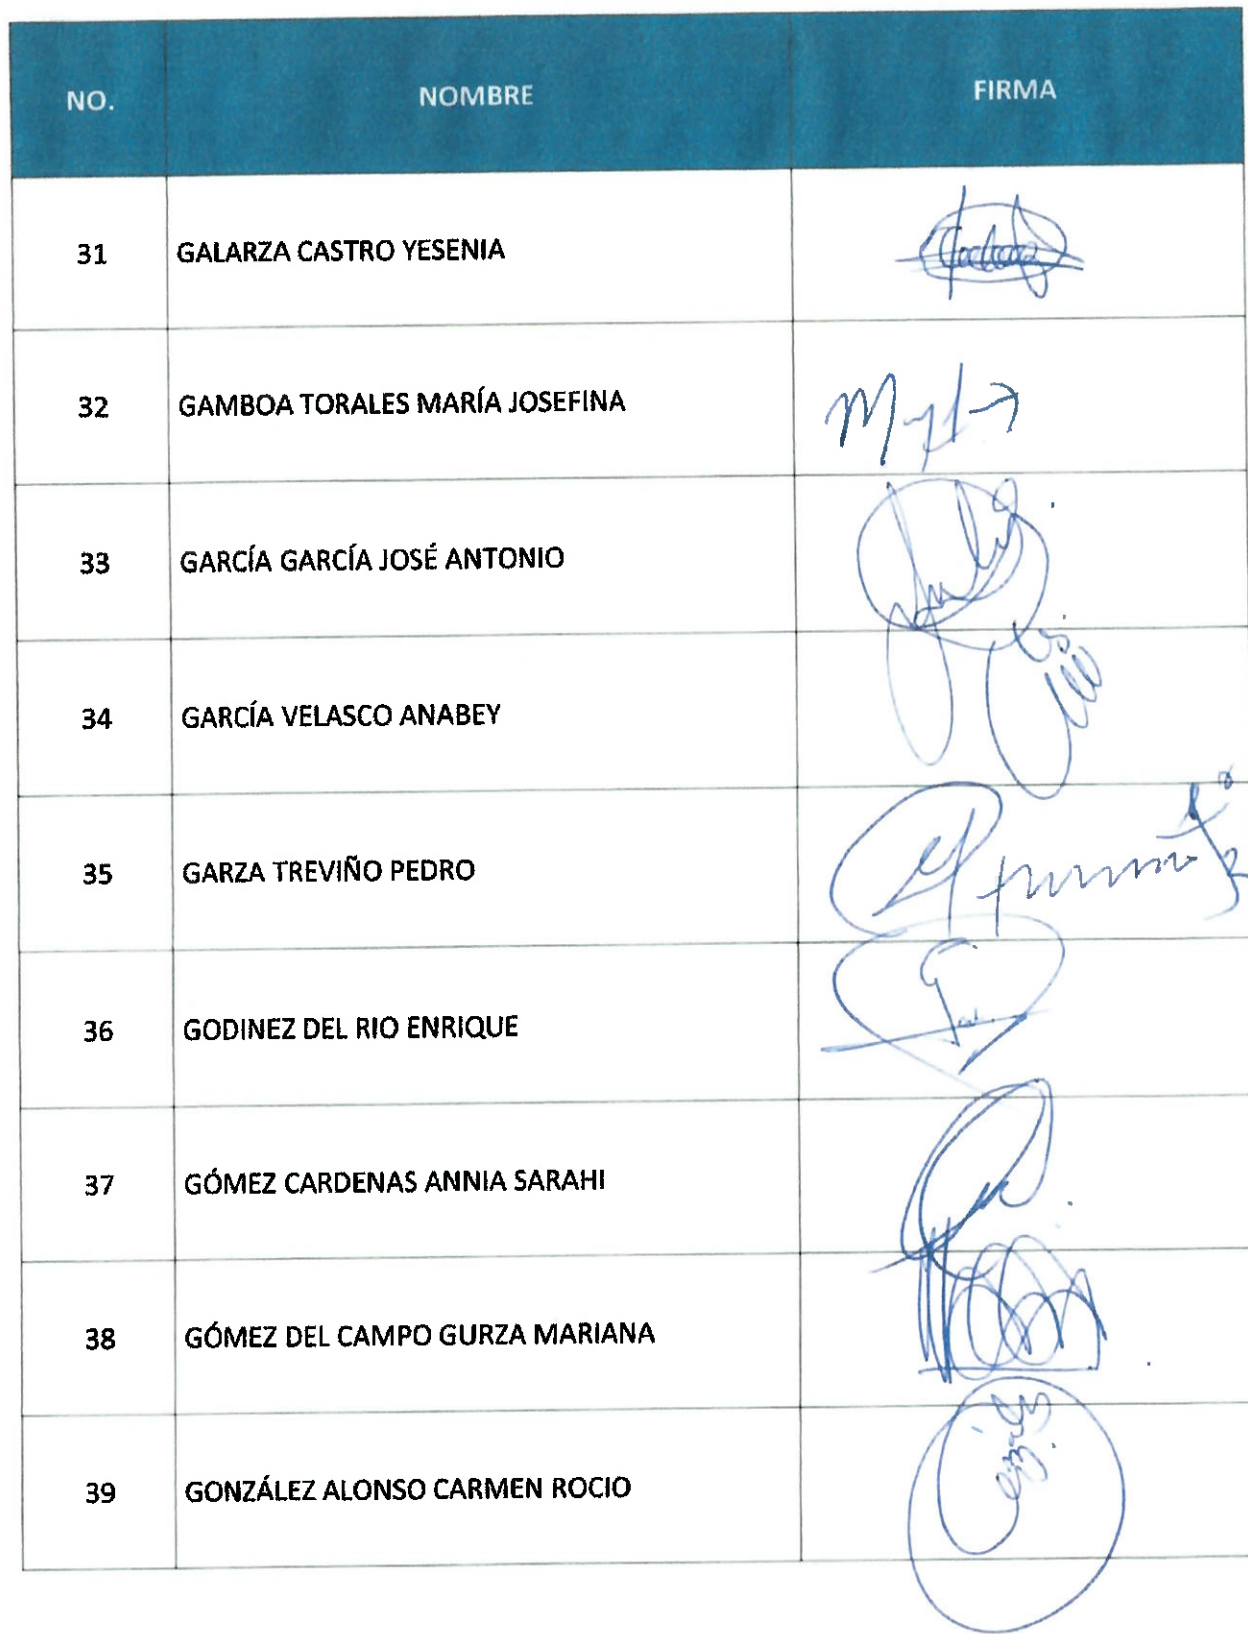 NO. NOMBRE FIRMA
31 GALARZA CASTRO YESENIA
32 GAMBOA TORALES MARÍA JOSEFINA
33 GARCÍA GARCÍA JOSÉ ANTONIO
34 GARCÍA VELASCO ANABEY
35 GARZA TREVIÑO PEDRO
36 GODINEZ DEL RIO ENRIQUE
37 GÓMEZ CARDENAS ANNIA SARAHI
38 GÓMEZ DEL CAMPO GURZA MARIANA
39 GONZÁLEZ ALONSO CARMEN ROCIO